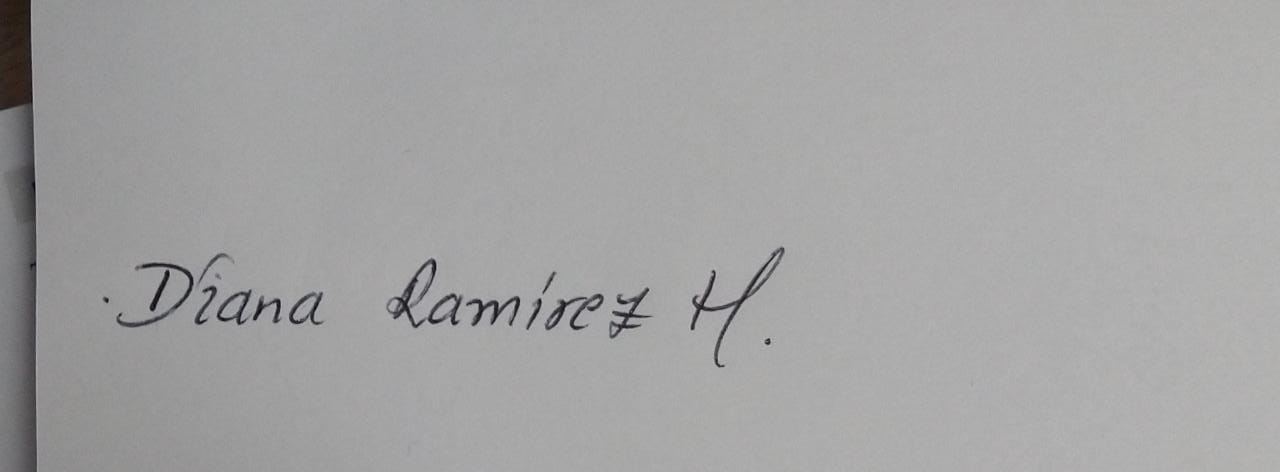 Diana Ramírez H.